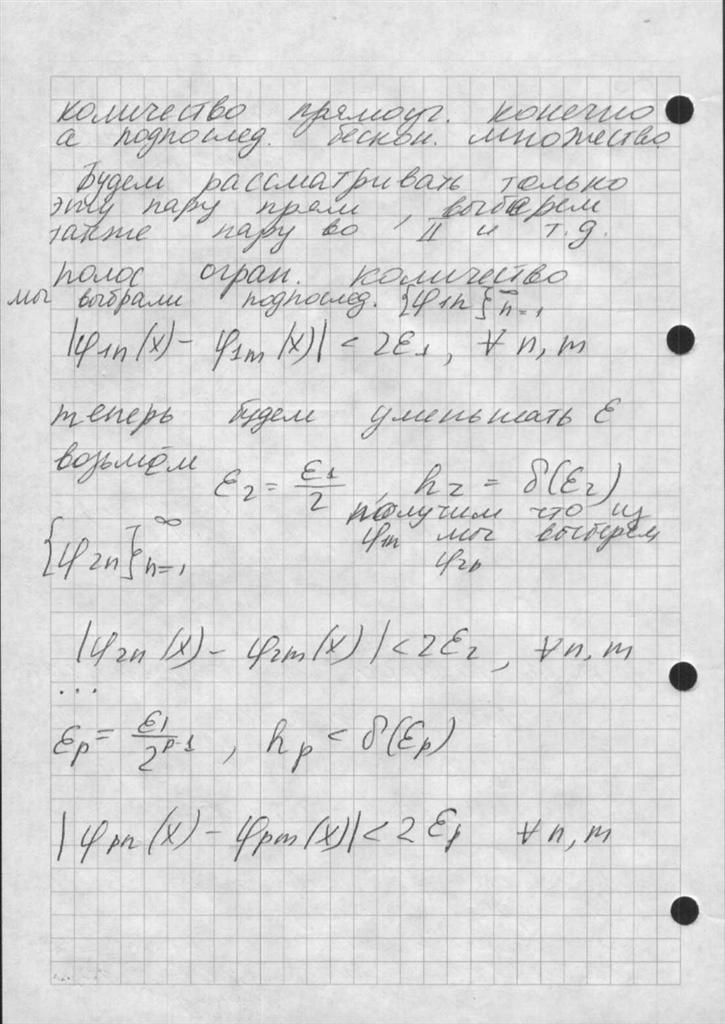 количество прямоуг. конечно
а подпослед. бескон. множество
Будем рассматривать только
эту пару прям, выберем
также пару во II и т.д.
полос огран. количество
мы выбрали подпослед. {φ1n}∞n=1
|φ1n(x) - φ1m(x)| < 2ε1, ∀ n, m
теперь будем уменьшать ε
возьмём ε2 = ε1/2, h2 = δ(ε2)
получим что из
φ1n мы выберем
{φ2n}∞n=1 φ2n
|φ2n(x) - φ2m(x)| < 2ε2, ∀ n, m
...
εp = ε1/2^p-1, hp < δ(εp)
|φpn(x) - φpm(x)| < 2εp ∀ n, m